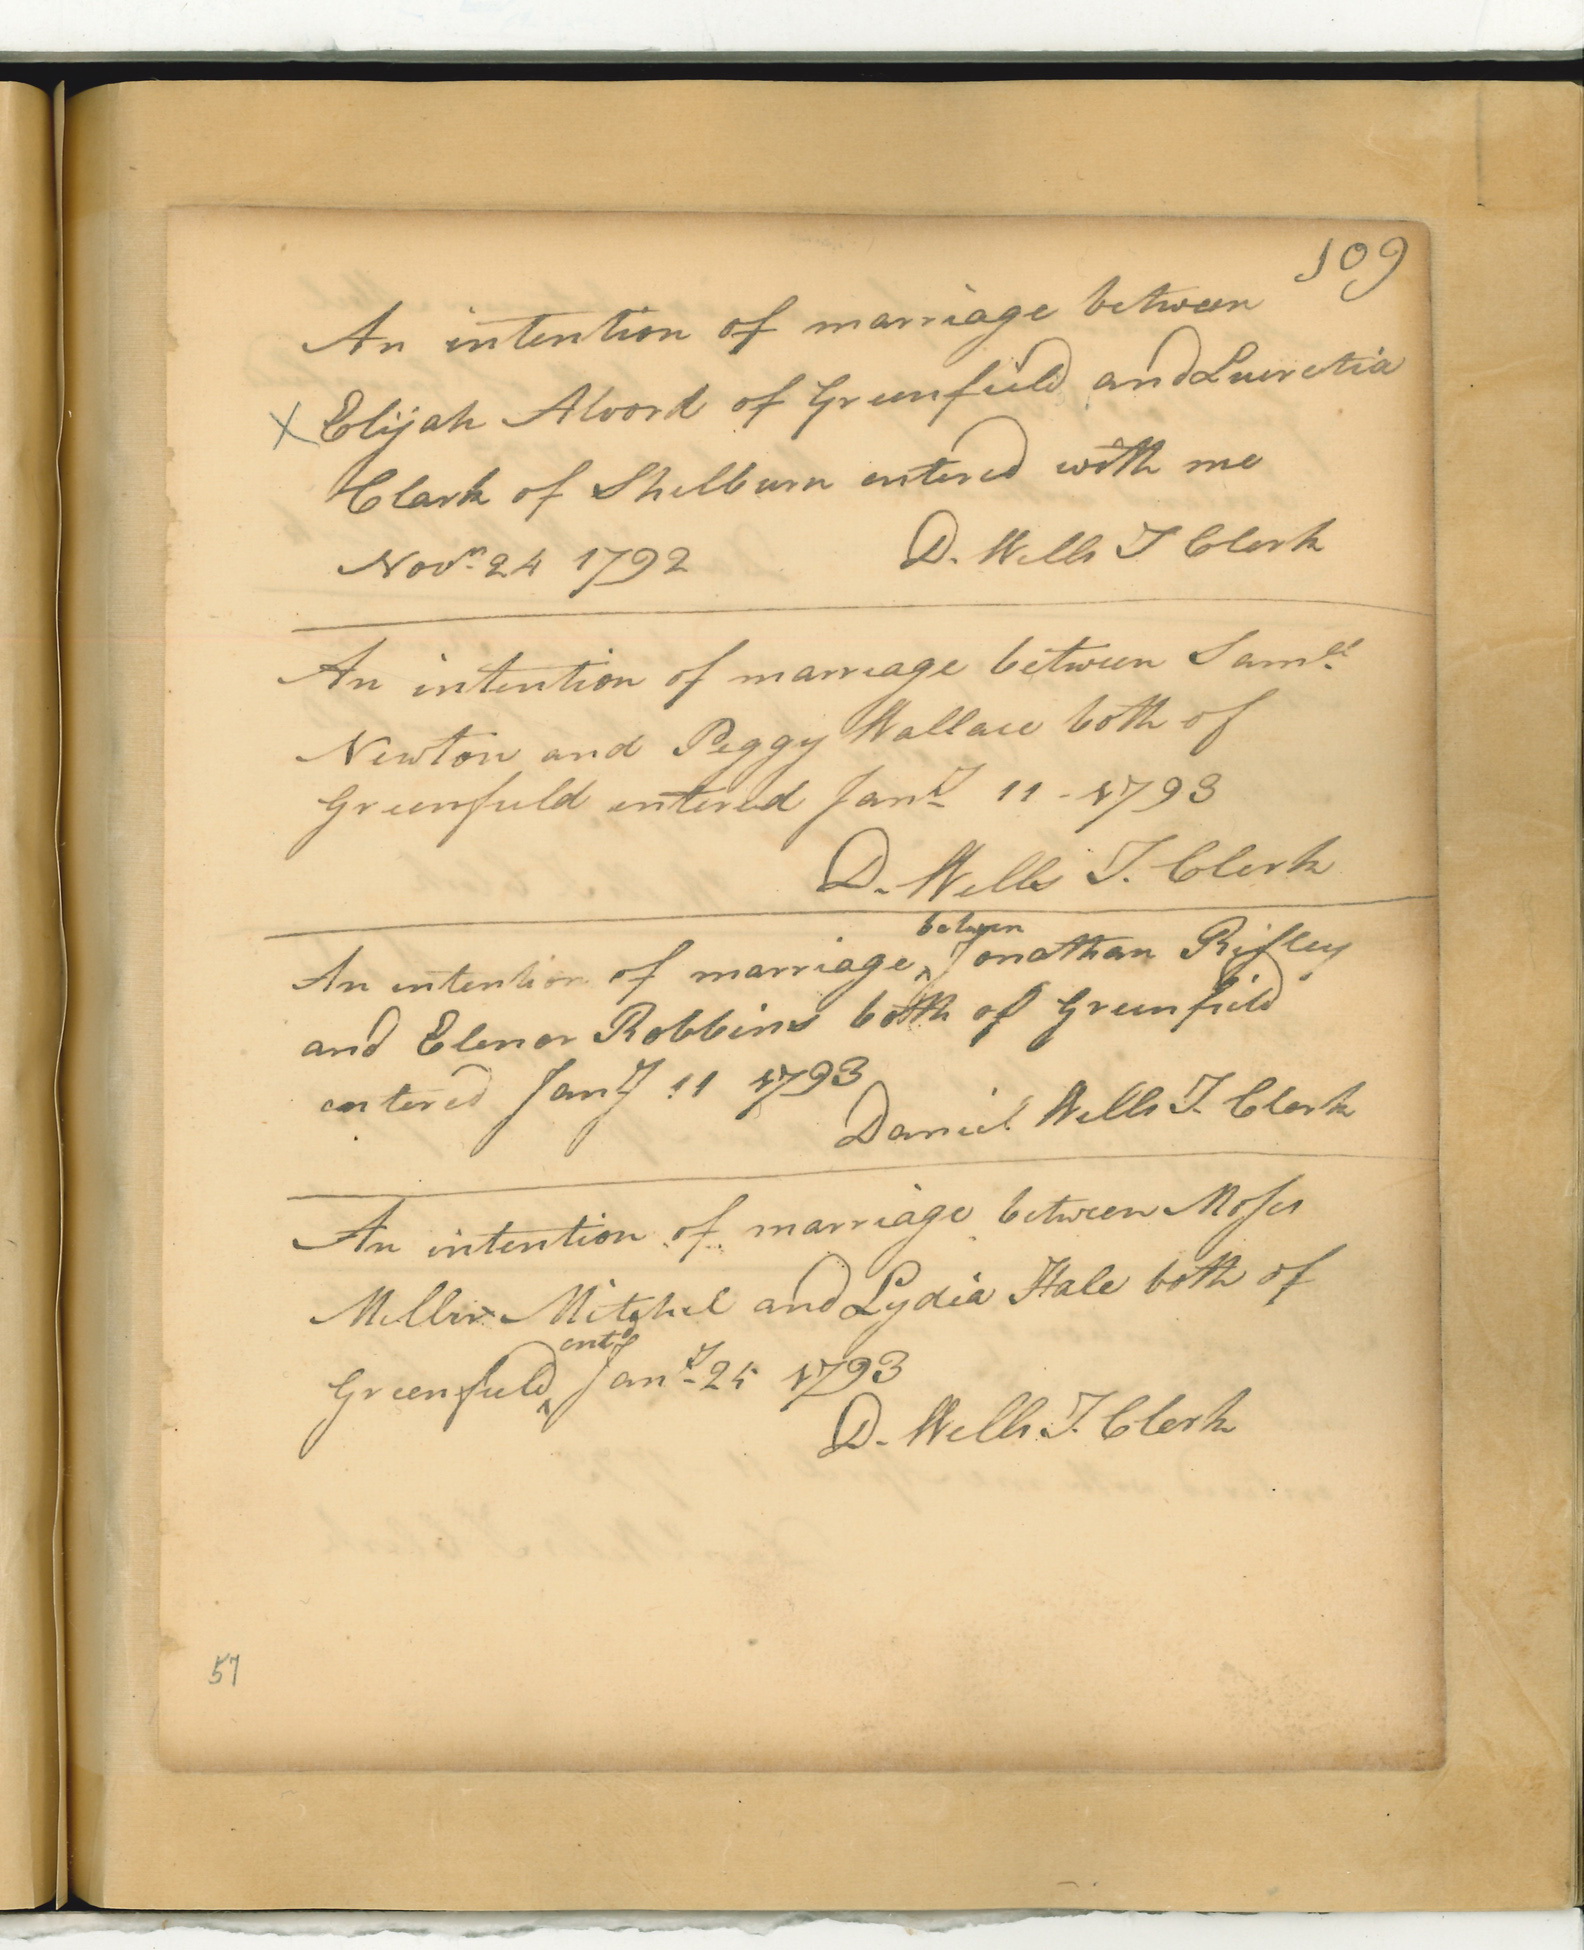 109
An intention of marriage between
X Elijah Alvord of Greenfield and Lucretia
Clark of Shelburn entered with me
Novr. 24 1792 D. Wells T Clerk
An intention of marriage between Samll.
Newton and Peggy Wallace both of
Greenfield entered Jany 11 - 1793
D. Wells T. Clerk
between
An intention of marriage ^ Jonathan Risley
and Elenor Robbins both of Greenfield
entered Jany 11 1793
Daniel Wells T. Clerk
An intention of marriage between Moses
Miller Mitchel and Lydia Hale both of
entd
Greenfield ^ Jany 25 1793
D. Wells T. Clerk
57